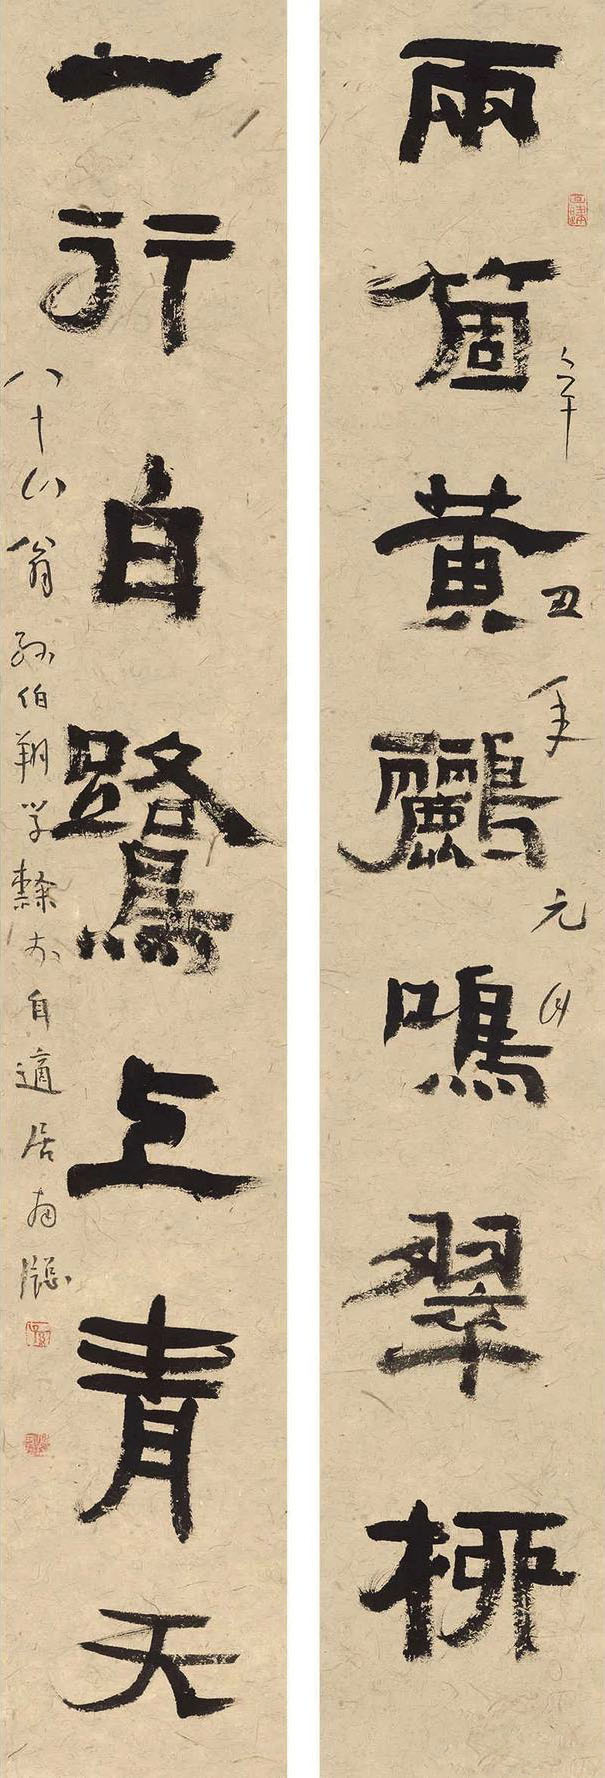 兩箇黃鸝鳴翠柳
辛丑年元月
一行白鷺上青天
八十八翁孫伯翔學隸於自適居南牕